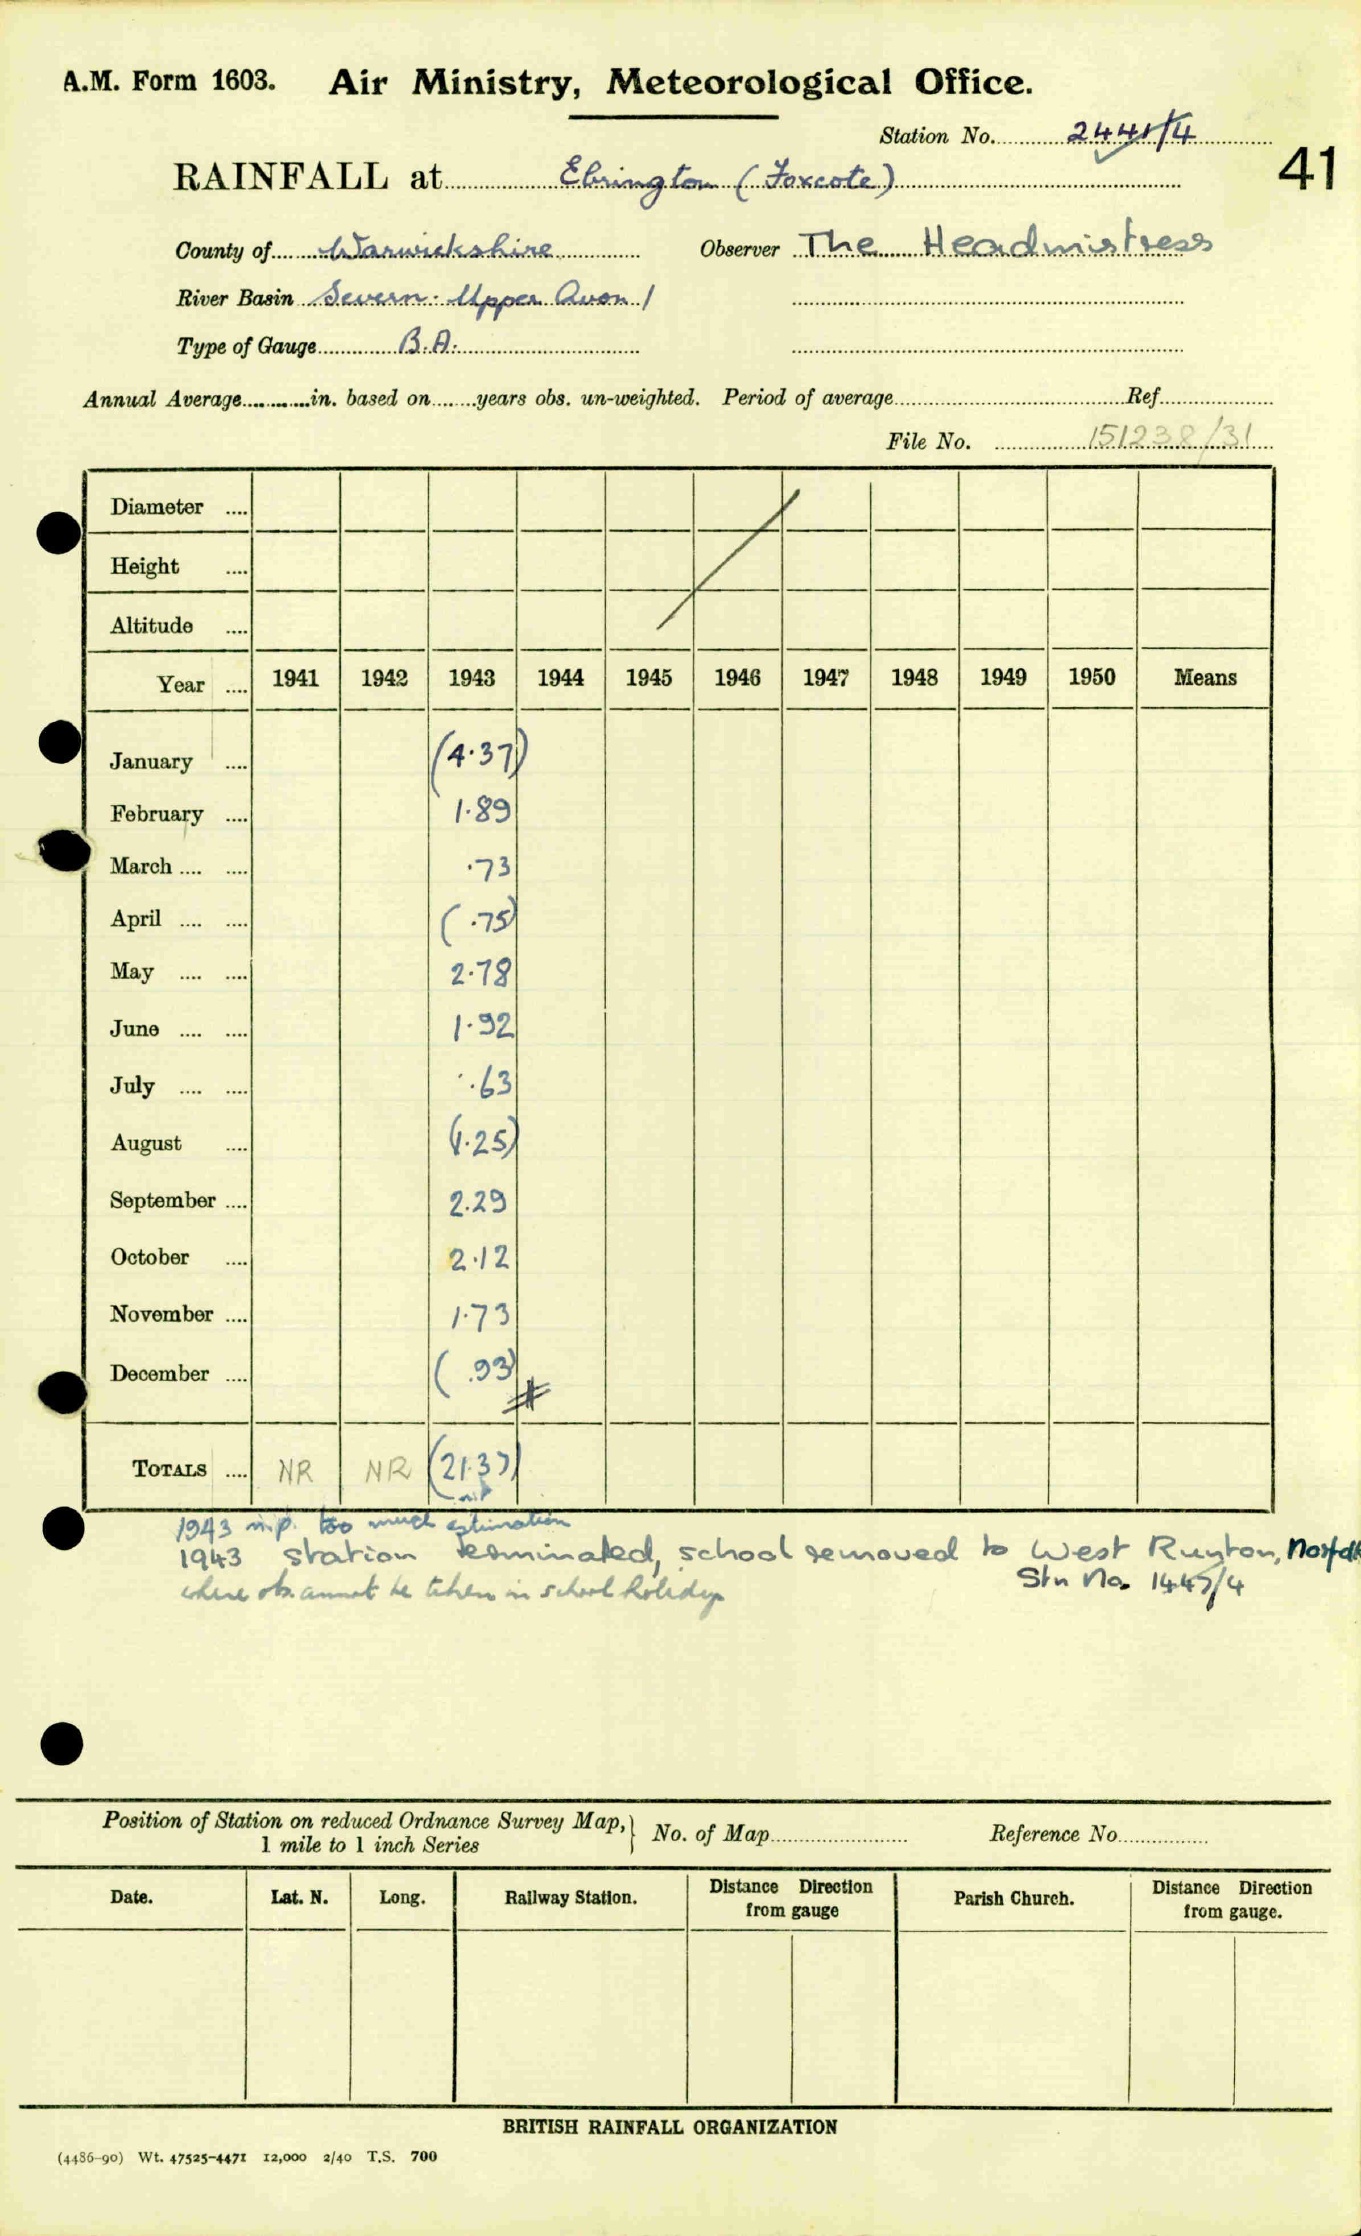 A.M. Form 1603. Air Ministry, Meteorological Office.
Station No. 2441/4
41
RAINFALL at Ebrington (Foxcote)
County of Warwickshire Observer The Headmistress
River Basin Severn. Upper Avon 1
Type of Gauge B.A.
Annual Average in. based on years obs. un-weighted. Period of average Ref
File No. 151238/31
Diameter
Height
Altitude
Year 1941 1942 1943 1944 1945 1946 1947 1948 1949 1950 Means
January (4.37)
February 1.89
March .73
April (.75)
May 2.78
June 1.92
July .63
August (1.25)
September 2.29
October 2.12
November 1.73
December (.93)
TOTALS NR NR (21.37)
n.p.
1943 n.p. too much estimation
1943 station terminated, school removed to West Runton, Norfolk
Stn No. 1447/4
where obs. cannot be taken in school holidays
Position of Station on reduced Ordnance Survey Map, } No. of Map Reference No
1 mile to 1 inch Series
Date. Lat. N. Long. Railway Station. Distance Direction from gauge Parish Church. Distance Direction from gauge.
BRITISH RAINFALL ORGANIZATION
(4486-90) Wt. 47525-4471 12,000 2/40 T.S. 700